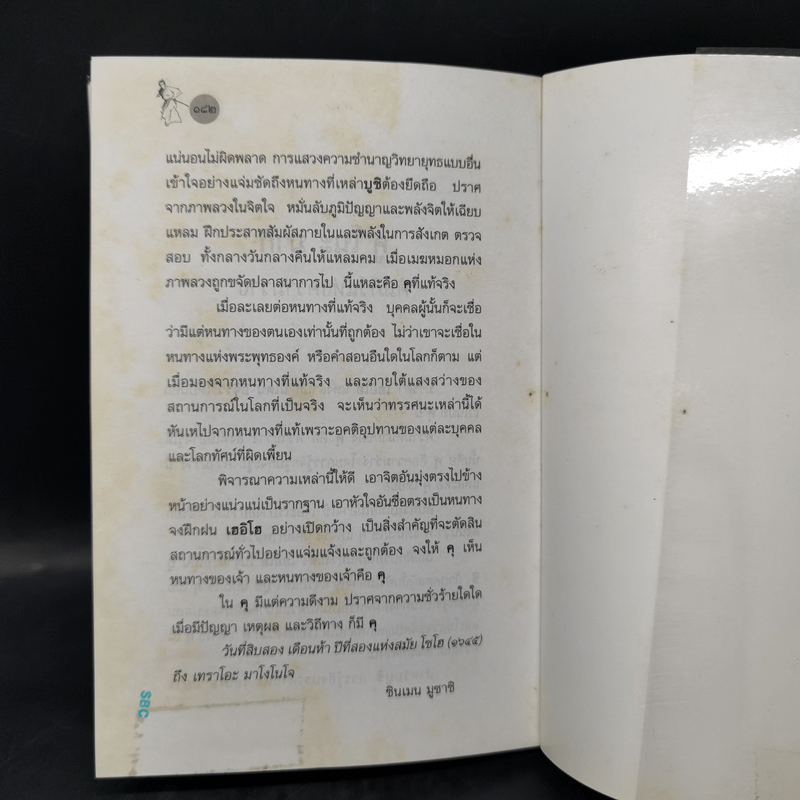 ๑๘๒
แน่นอนไม่ผิดพลาด การแสวงความชำนาญวิทยายุทธแบบอื่น
เข้าใจอย่างแจ่มชัดถึงหนทางที่เหล่าบูชิต้องยึดถือ ปราศ
จากภาพลวงในจิตใจ หมั่นลับภูมิปัญญาและพลังจิตให้เฉียบ
แหลม ฝึกประสาทสัมผัสภายในและพลังในการสังเกต ตรวจ
สอบ ทั้งกลางวันกลางคืนให้แหลมคม เมื่อเมฆหมอกแห่ง
ภาพลวงถูกขจัดปลาสนาการไป นี้แหละคือ คุที่แท้จริง
เมื่อละเลยต่อหนทางที่แท้จริง บุคคลผู้นั้นก็จะเชื่อ
ว่ามีแต่หนทางของตนเองเท่านั้นที่ถูกต้อง ไม่ว่าเขาจะเชื่อใน
หนทางแห่งพระพุทธองค์ หรือคำสอนอื่นใดในโลกก็ตาม แต่
เมื่อมองจากหนทางที่แท้จริง และภายใต้แสงสว่างของ
สถานการณ์ในโลกที่เป็นจริง จะเห็นว่าทรรศนะเหล่านี้ได้
หันเหไปจากหนทางที่แท้เพราะอคติอุปทานของแต่ละบุคคล
และโลกทัศน์ที่ผิดเพี้ยน
พิจารณาความเหล่านี้ให้ดี เอาจิตอันมุ่งตรงไปข้าง
หน้าอย่างแน่วแน่เป็นรากฐาน เอาหัวใจอันซื่อตรงเป็นหนทาง
จงฝึกฝน เฮอิโฮ อย่างเปิดกว้าง เป็นสิ่งสำคัญที่จะตัดสิน
สถานการณ์ทั่วไปอย่างแจ่มแจ้งและถูกต้อง จงให้ คุ เห็น
หนทางของเจ้า และหนทางของเจ้าคือ คุ
ใน คุ มีแต่ความดีงาม ปราศจากความชั่วร้ายใดใด
เมื่อมีปัญญา เหตุผล และวิถีทาง ก็มี คุ
วันที่สิบสอง เดือนห้า ปีที่สองแห่งสมัย โชโฮ (๑๖๔๕)
ถึง เทราโอะ มาโงโนโจ
ชินเมน มูซาชิ
SBC